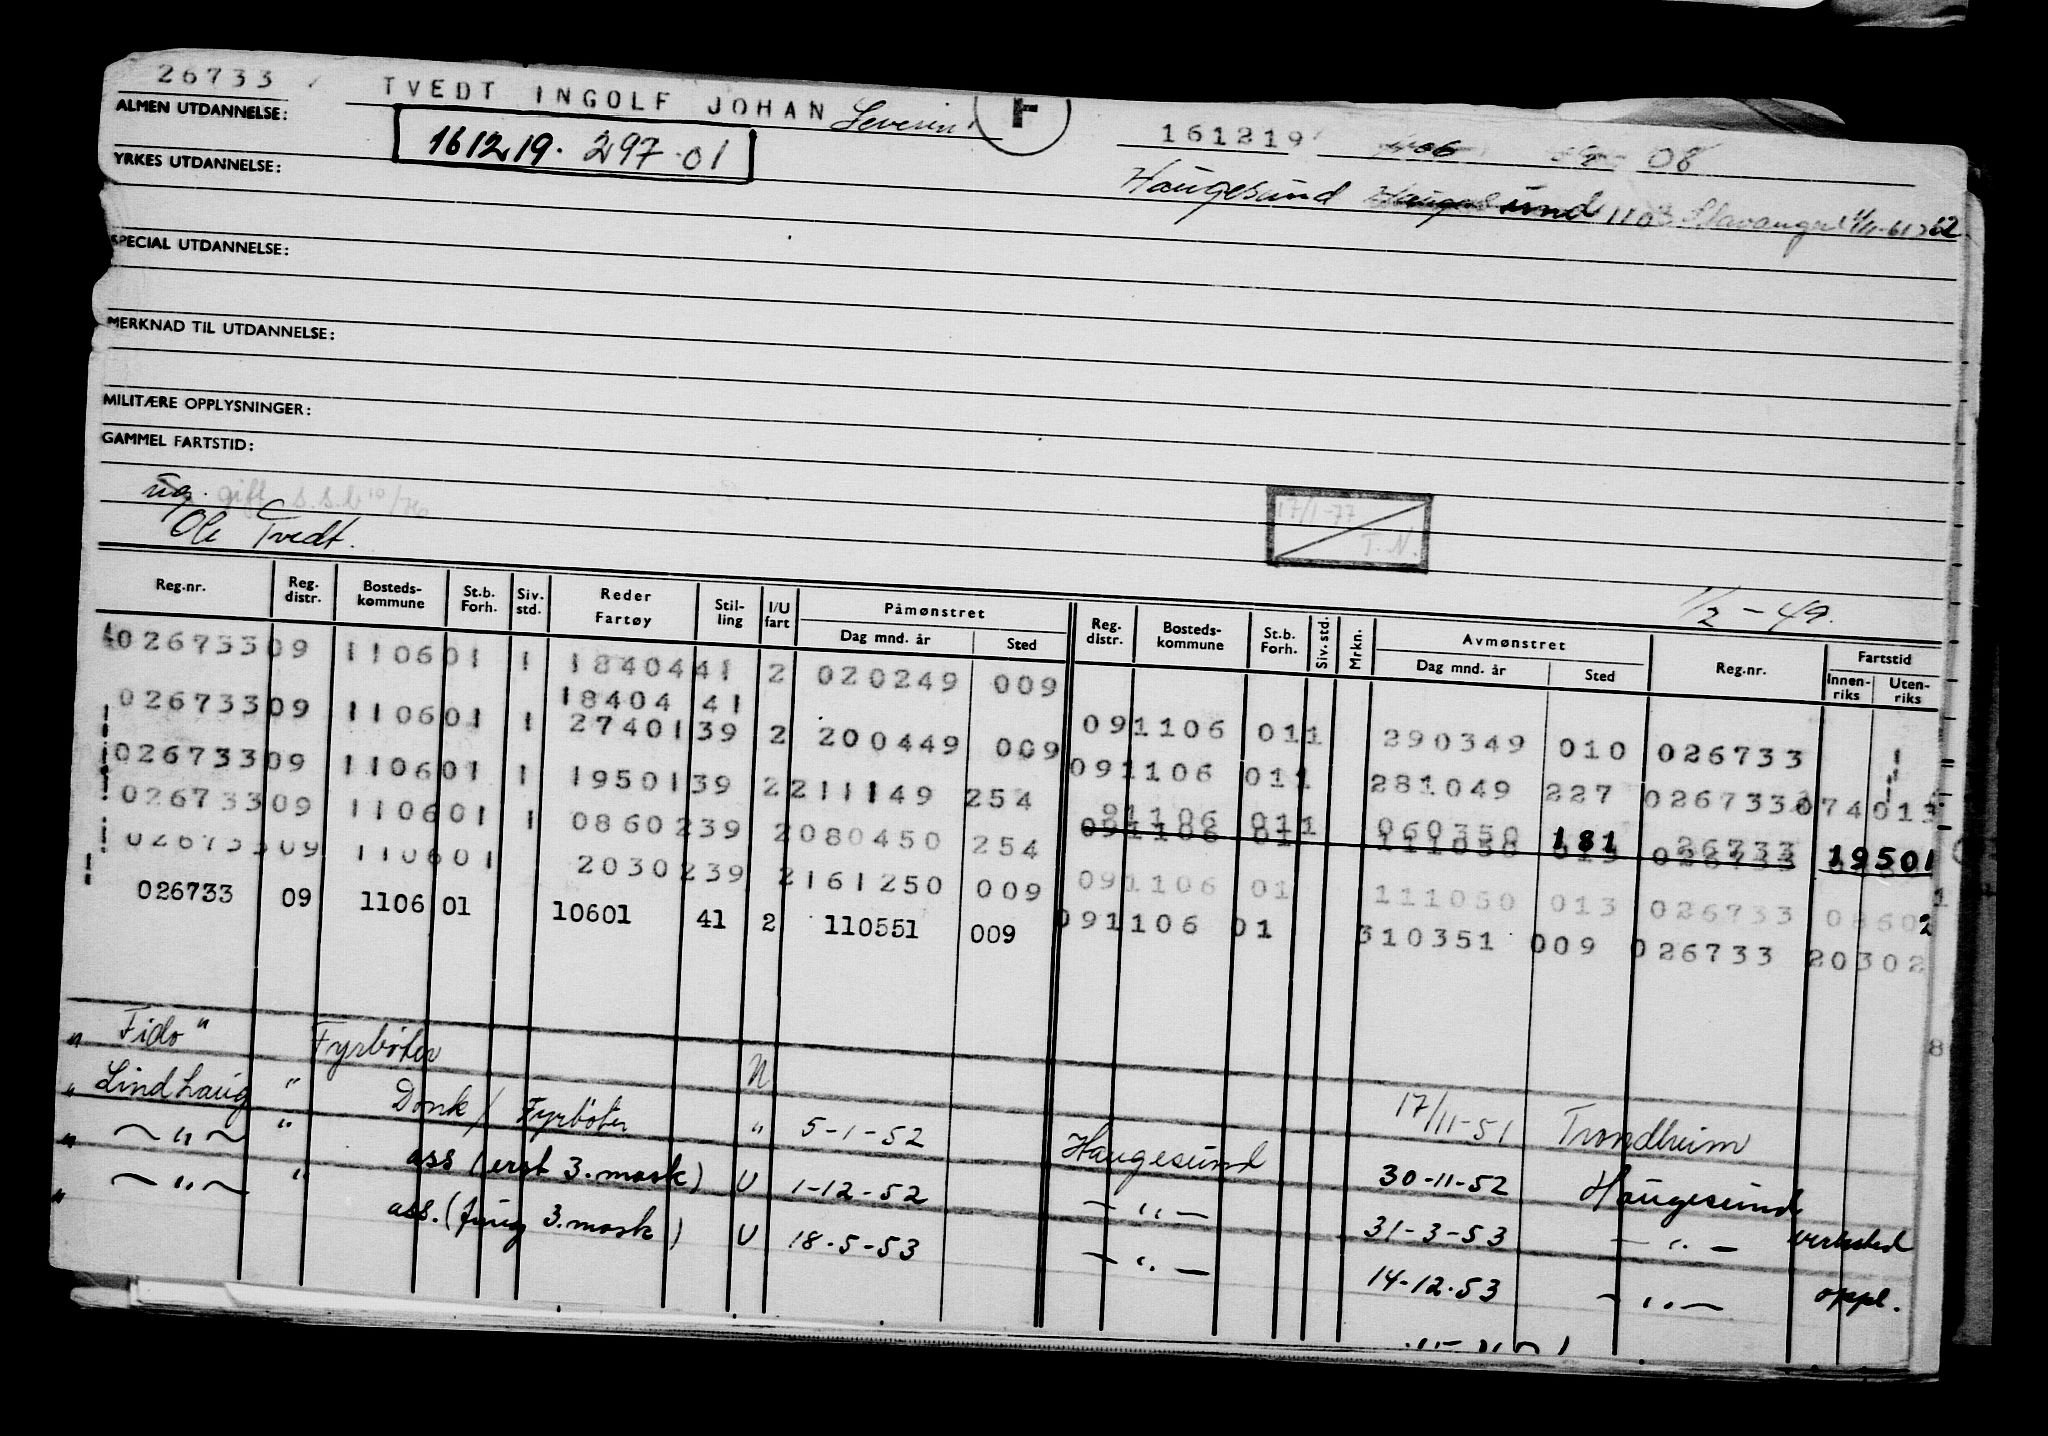 26733 TVEDT INGOLF JOHAN Severin F 161219 08
ALMEN UTDANNELSE:
161219. 297-01
Haugesund 1103 Stavanger 1/11-61
YRKES UTDANNELSE:
SPECIAL UTDANNELSE:
MERKNAD TIL UTDANNELSE:
MILITÆRE OPPLYSNINGER:
GAMMEL FARTSTID:
ug. gift s.s.b
Ole Tvedt.
17/1-77
T.N.
1/2-49.
Reg.nr. Reg. distr. Bosteds-kommune St.b. Forh. Siv. std. Reder Fartøy Stil-ling I/U fart Påmønstret Dag mnd. år Sted Reg. distr. Bosteds-kommune St.b. Forh. Siv. std. Mrkn. Avmønstret Dag mnd. år Sted Reg.nr. Fartstid Innen-riks Uten-riks
026733 09 1106 01 1 18404 41 2 020249 009
18404 41
026733 09 1106 01 1 27401 39 2 200449 009 09 1106 01 1 290349 010 026733
026733 09 1106 01 1 19501 39 2 211149 254 09 1106 01 1 281049 227 026733 074013
026733 09 1106 01 1 08602 39 2 080450 254 91106 011 060350 181 26733 19501
026733 09 1106 01 20302 39 2 161250 009 09 1106 01 111050 013 026733 08602
026733 09 1106 01 10601 41 2 110551 009 09 1106 01 310351 009 026733 20302
8
" Fido " Fyrbøter N 17/11-51 Trondheim
" Lindhaug " Donk / Fyrbøter " 5-1-52 Haugesund 30-11-52 Haugesund
" — " — " ass (erst 3. mask) U 1-12-52 — " — 31-3-53 — " — verksted
" — " — " ass. (fung 3. mask) U 18-5-53 — " — 14-12-53 — " — oppl.